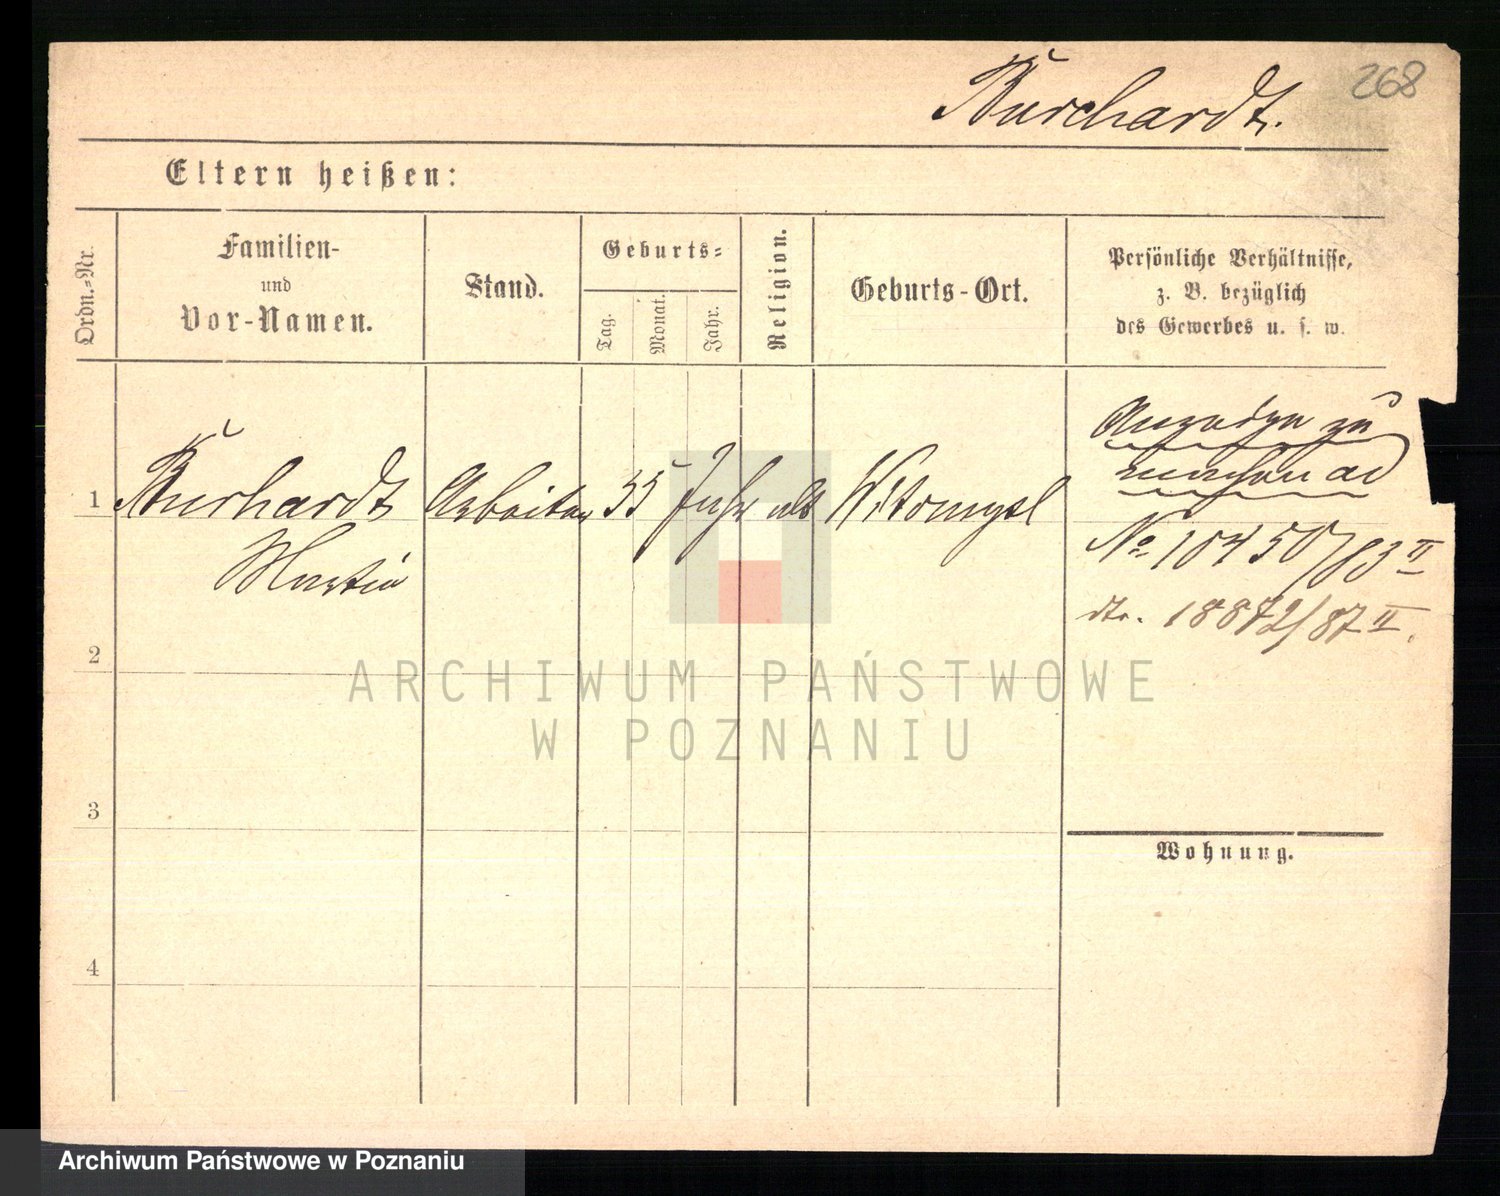 268
Burchardt.
Eltern heißen:
Ordn.-Nr.
Familien-
und
Vor-Namen.
Stand.
Geburts-
Tag.
Monat.
Jahr.
Religion.
Geburts-Ort.
Persönliche Verhältnisse,
z. B. bezüglich
des Gewerbes u. s. w.
1
Burhardt
Martin
Arbeiter
55 Jahr alt
Witomysl
Anzeigen zu
machen ad
No 10450/83 II
dto. 18872/87 II.
2
3
4
Wohnung.
ARCHIWUM PAŃSTWOWE
W POZNANIU
Archiwum Państwowe w Poznaniu